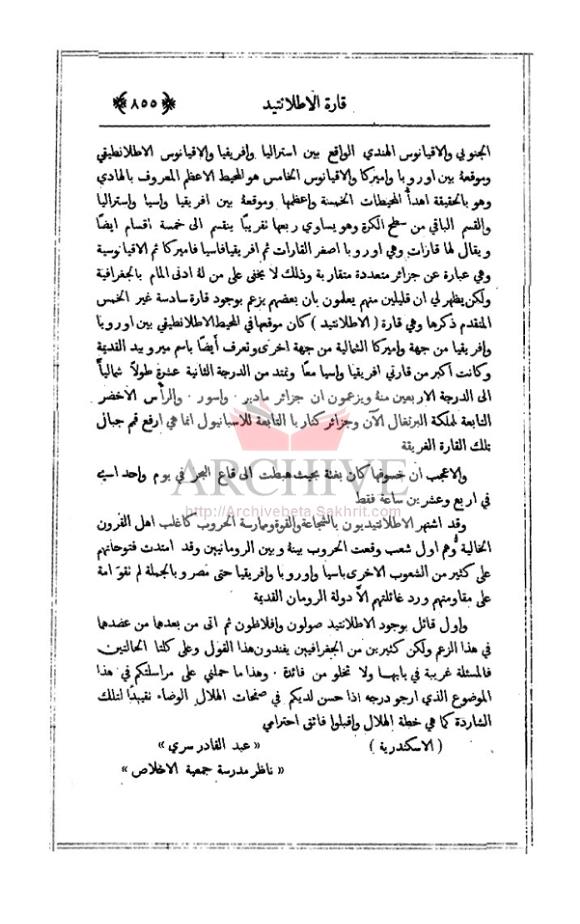 قارة الاطلانتيد ﴿٨٥٥﴾
الجنوبي والاقيانوس الهندي الواقع بين استراليا وإفريقيا والاقيانوس الاطلانطيقي
وموقعهُ بين اوروبا واميركا والاقيانوس الخامس هو المحيط الاعظم المعروف بالهادي
وهو بالحقيقة اهدأ المحيطات الخمسة وإعظمها وموقعهُ بين افريقيا وإسيا وإستراليا
والقسم الباقي من سطح الكرة وهو يساوي ربعها تقريبًا ينقسم الى خمسة اقسام ايضًا
ويقال لها قارات وهي اوروبا اصغر القارات ثم افريقيا فاسيا فاميركا ثم الاقيانوسية
وهي عبارة عن جزائر متعددة متقاربة وذلك لا يخفى على من لهُ ادنى المام بالجغرافية
ولكن يظهر لي ان قليلين منهم يعلمون بان بعضهم يزعم بوجود قارة سادسة غير الخمس
المتقدم ذكرها وهي قارة ( الاطلانتيد ) كان موقعها في المحيط الاطلانطيقي بين اوروبا
وإفريقيا من جهة واميركا الشمالية من جهة اخرى وتعرف أيضًا باسم ميروبيد القديمة
وكانت اكبر من قارتي افريقيا وإسيا معًا وتمتد من الدرجة الثانية عشرة طولاً شماليًا
الى الدرجة الاربعين منهُ ويزعمون ان جزائر مادير · واسور · والرأس الأخضر
التابعة لمملكة البرتغال الآن وجزائر كناريا التابعة للاسبانيول انما هي ارفع قمم جبال
تلك القارة الغريقة
والاعجب ان خسوفها كان بغتة بحيث هبطت الى قاع البحر في يوم واحد اسيه
في اربع وعشرين ساعة فقط
وقد اشتهر الاطلانتيديون بالشجاعة والقوة وممارسة الحروب كاغلب اهل القرون
الخالية وهم اول شعب وقعت الحروب بينهُ وبين الرومانيين وقد امتدت فتوحاتهم
على كثير من الشعوب الاخرى باسيا وإوروبا وإفريقيا حتى مصر وبالجملة لم تقوَ امة
على مقاومتهم ورد غائلتهم الاَّ دولة الرومان القديمة
واول قائل بوجود الاطلانتيد صولون وإفلاطون ثم اتى من بعدها من عضدهما
في هذا الزعم ولكن كثيرين من الجغرافيين يفندون هذا القول وعلى كلتا الحالتين
فالمسئلة غريبة في بابها ولا تخلو من فائدة · وهذا ما حملني على مراسلتكم في هذا
الموضوع الذي ارجو درجه اذا حسن لديكم في صفحات الهلال الوضاء تقييدًا لتلك
الشاردة كما هي خطة الهلال وإقبلوا فائق احترامي
( الاسكندرية ) « عبد القادر سري »
« ناظر مدرسة جمعية الاخلاص »
ARCHIVE
http://Archivebeta.Sakhrit.com